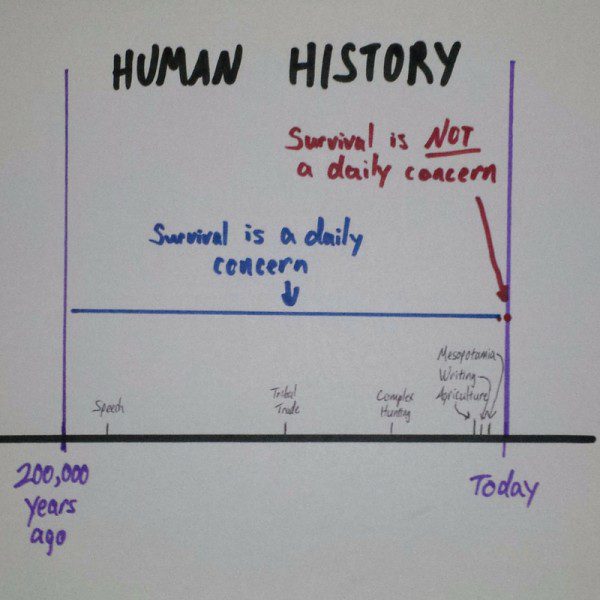 HUMAN HISTORY
Survival is NOT
a daily concern
Survival is a daily
concern
Mesopotamia
Writing
Agriculture
Speech
Tribal
Trade
Complex
Hunting
200,000
years
ago
Today